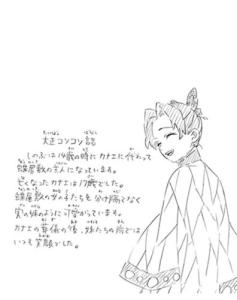 大正コソコソ噂話
しのぶは14歳の時にカナエに代わって
蝶屋敷の主人になっています。
亡くなったカナエは17歳でした。
蝶屋敷の女の子たちを分け隔てなく
実の妹のように可愛がっています。
カナエの葬儀の後、妹たちの前では
いつも笑顔でした。